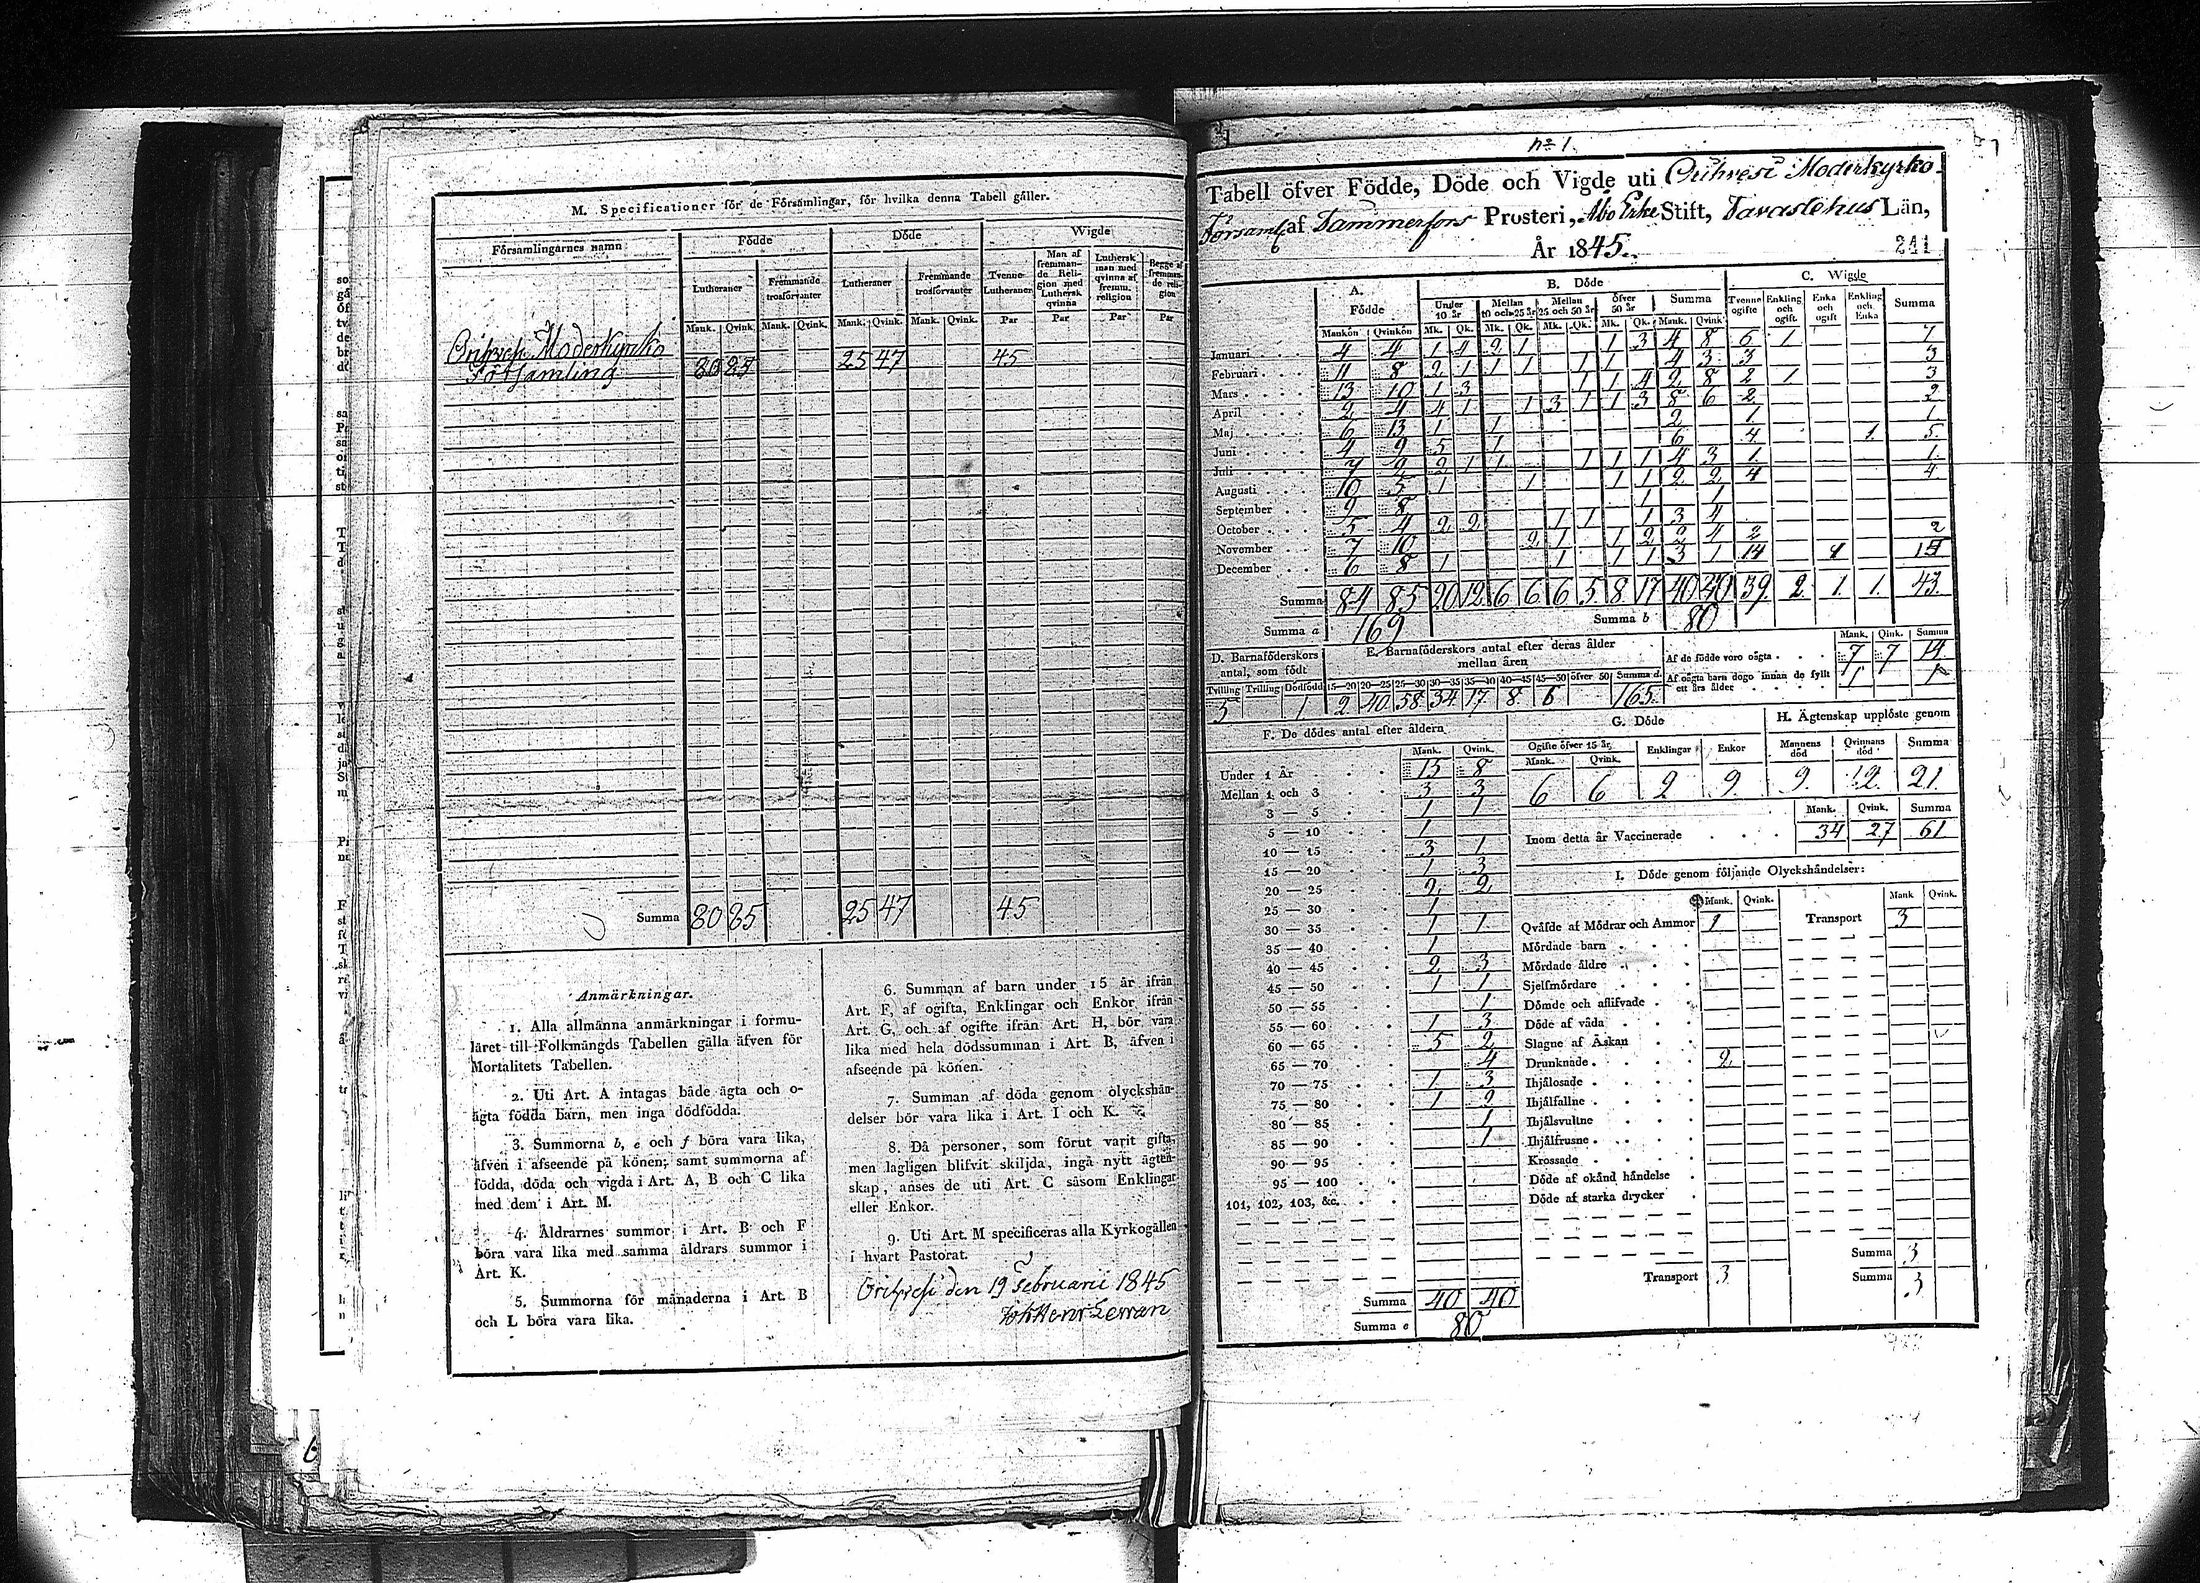 M. Specificationer för de Församlingar, för hvilka denna Tabell gäller.
Församlingarnes namn Födde Döde Wigde
Lutheraner Fremmande trosförvanter Lutheraner Fremmande trosförvanter Tvenne Lutheraner Man af fremmande Religion med Luthersk qvinna Luthersk man med qvinna af fremm. religion Begge af fremmande religion
Mank. Qvink. Mank. Qvink. Mank. Qvink. Mank. Qvink. Par Par Par Par
Orihvesi Moderkyrko
Församling 80 85 25 47 45
Summa 80 85 25 47 45
Anmärkningar.
1. Alla allmänna anmärkningar i formu-
läret till Folkmängds Tabellen gälla äfven för
Mortalitets Tabellen.
2. Uti Art. A intagas både ägta och o-
ägta födda barn, men inga dödfödda.
3. Summorna b, e och f böra vara lika,
äfven i afseende på könen; samt summorna af
födda, döda och vigda i Art. A, B och C lika
med dem i Art. M.
4. Åldrarnes summor i Art. B och F
böra vara lika med samma åldrars summor i
Art. K.
5. Summorna för månaderna i Art. B
och L böra vara lika.
6. Summan af barn under 15 år ifrån
Art. F, af ogifta, Enklingar och Enkor ifrån
Art. G, och af ogifte ifrån Art. H, bör vara
lika med hela dödssumman i Art. B, äfven i
afseende på könen.
7. Summan af döda genom olyckshän-
delser bör vara lika i Art. I och K.
8. Då personer, som förut varit gifta,
men lagligen blifvit skiljda, ingå nytt ägten-
skap, anses de uti Art. C såsom Enklingar
eller Enkor.
9. Uti Art. M specificeras alla Kyrkogällen
i hvart Pastorat.
Orihvesi den 19 Februarii 1845
No 1.
Tabell öfver Födde, Döde och Vigde uti Orihvesi Moderkyrko-
Församl. af Tammerfors Prosteri, Åbo Erke Stift, Tavastehus Län,
År 1845.
241
A. Födde B. Döde C. Wigde
Under 10 år Mellan 10 och 25 år Mellan 25 och 50 år Öfver 50 år Summa Tvenne ogifte Enkling och ogift Enka och ogift Enkling och Enka Summa
Mankön Qvinkön Mk. Qk. Mk. Qk. Mk. Qk. Mk. Qk. Mank. Qvink.
Januari 4 4 1 4 2 1 1 3 4 8 6 1 7
Februari 11 8 2 1 1 1 1 1 4 3 3 3
Mars 13 10 1 3 1 1 4 2 8 2 1 3
April 2 4 4 1 1 3 1 1 3 8 6 2 2
Maj 6 13 1 1 2 1 1
Juni 4 9 5 1 6 4 1 5
Juli 7 2 2 1 1 1 1 1 4 3 1 1
Augusti 10 5 1 1 1 1 2 2 4 4
September 9 8 1 1
October 5 4 2 2 1 1 1 3 4
November 7 10 2 1 1 2 2 4 2 2
December 6 8 1 1 1 1 3 1 14
Summa 84 85 20 12 6 6 6 5 8 17 40 40 39 2 1 1 43
Summa a 169 Summa b 80
D. Barnaföderskors antal, som födt
Tvilling Trilling Dödfödd
5 1
E. Barnaföderskors antal efter deras ålder mellan åren
15—20 20—25 25—30 30—35 35—40 40—45 45—50 öfver 50 Summa d.
2 40 58 34 17 8 6 165
Mank. Qink. Summa
Af de födde voro oägta 7 7 14
Af oägta barn dogo innan de fyllt ett års ålder 1 1
F. De dödes antal efter åldern
Mank. Qvink.
Under 1 År 15 8
Mellan 1 och 3 3 3
3 — 5 1 1
5 — 10 1
10 — 15 3 1
15 — 20 1 3
20 — 25 2 2
25 — 30 1
30 — 35 1 1
35 — 40 1
40 — 45 2 3
45 — 50 1 1
50 — 55 1
55 — 60 1 3
60 — 65 5 2
65 — 70 4
70 — 75 1 3
75 — 80 1 2
80 — 85 1
85 — 90 1
90 — 95
95 — 100
101, 102, 103, &c.
Summa 40 40
Summa e 80
G. Döde
Ogifte öfver 15 år Enklingar Enkor
Mank. Qvink.
6 6 2 9
H. Ägtenskap upplöste genom
Mannens död Qvinnans död Summa
9 12 21
Mank. Qvink. Summa
Inom detta år Vaccinerade 34 27 61
I. Döde genom följande Olyckshändelser:
Mank. Qvink. Mank Qvink.
Qväfde af Mödrar och Ammor 1 Transport 3
Mördade barn
Mördade äldre
Sjelfmördare
Dömde och aflifvade
Döde af våda
Slagne af Åskan
Drunknade 2
Ihjälosade
Ihjälfallne
Ihjälsvultne
Ihjälfrusne
Krossade
Döde af okänd händelse
Döde af starka drycker
Summa 3
Transport 3 Summa 3